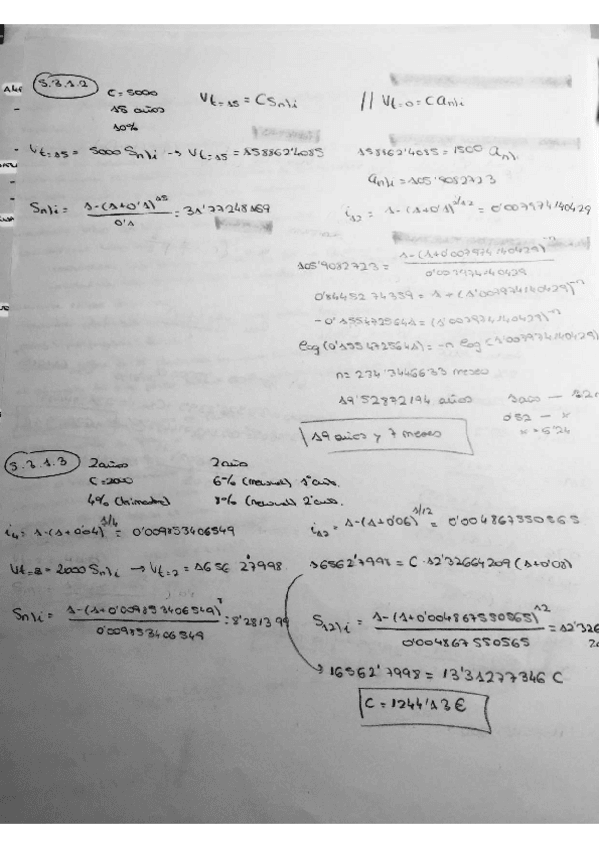 5.3.1.2
C = 5000
15 años
10%
Vt=15 = C Sn⌉i // Vt=0 = C an⌉i
Vt=15 = 5000 Sn⌉i → Vt=15 = 158862'4085
Sn⌉i = 1-(1+0'1)^15 / 0'1 = 31'77248169
158862'4085 = 1500 an⌉i
an⌉i = 105'9082723
i12 = 1-(1+0'1)^1/12 = 0'007974140429
105'9082723 = 1-(1+0'007974140429)^-n / 0'007974140429
0'8445274359 = 1+(1'007974140429)^-n
-0'1554725641 = (1'007974140429)^-n
log(0'1554725641) = -n log(1'007974140429)
n = 234'3446633 meses
19'52872194 años
1 año — 12
0'52 — x
x = 6'24
19 años y 7 meses
5.3.1.3
2 años
C = 2000
4% (trimestral)
2 años
6% (mensual) 1º año.
8% (mensual) 2º año.
i4 = 1-(1+0'04)^1/4 = 0'009853406549
i12 = 1-(1+0'06)^1/12 = 0'004867550565
Vt=2 = 2000 Sn⌉i → Vt=2 = 16562'7998
16562'7998 = C · 12'32664209 (1+0'08)
Sn⌉i = 1-(1+0'009853406549) / 0'009853406549 = 8'281399
S12⌉i = 1-(1+0'004867550565)^12 / 0'004867550565 = 12'326
16562'7998 = 13'31277346 C
C = 1244'13€